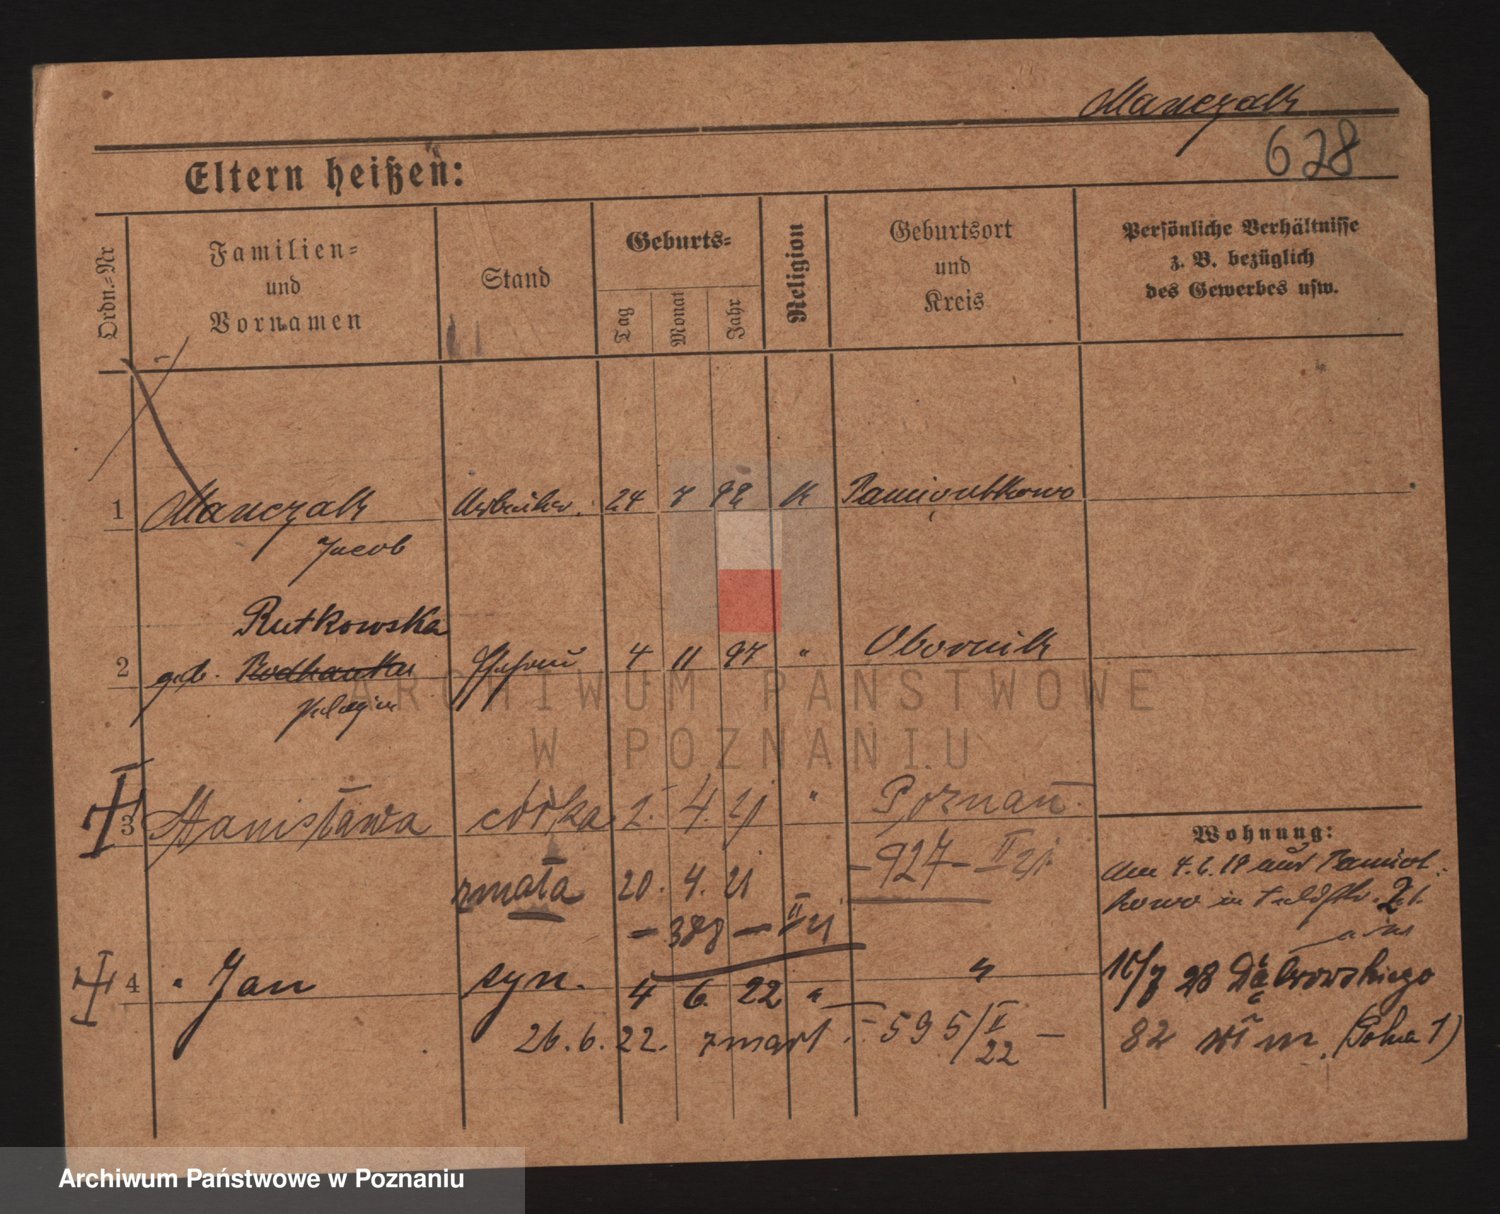 Manczak
628
Eltern heißen:
Ordn.-Nr
Familien-
und
Vornamen
Stand
Geburts-
Tag
Monat
Jahr
Religion
Geburtsort
und
Kreis
Persönliche Verhältnisse
z. B. bezüglich
des Gewerbes usw.
1 Manczak Arbeiter. 24 7 92 K Pamiontkowo
Jacob
Rutkowska
2 geb. 4 11 97 " Obornik
Pelagia
3 Stanisława córka 2. 4. 21 " Poznań.
- 927 - II 21.
zmała 20. 4. 21
- 388 - II 21
Wohnung:
Am 4.6.19 aus Pamiont-
kowo in
4 " Jan syn. 4 6. 22 " "
26.6.22. zmarł - 595/II
22 -
10/7 28 Dąbrowskiego
82 m.
ARCHIWUM PAŃSTWOWE
W POZNANIU
Archiwum Państwowe w Poznaniu